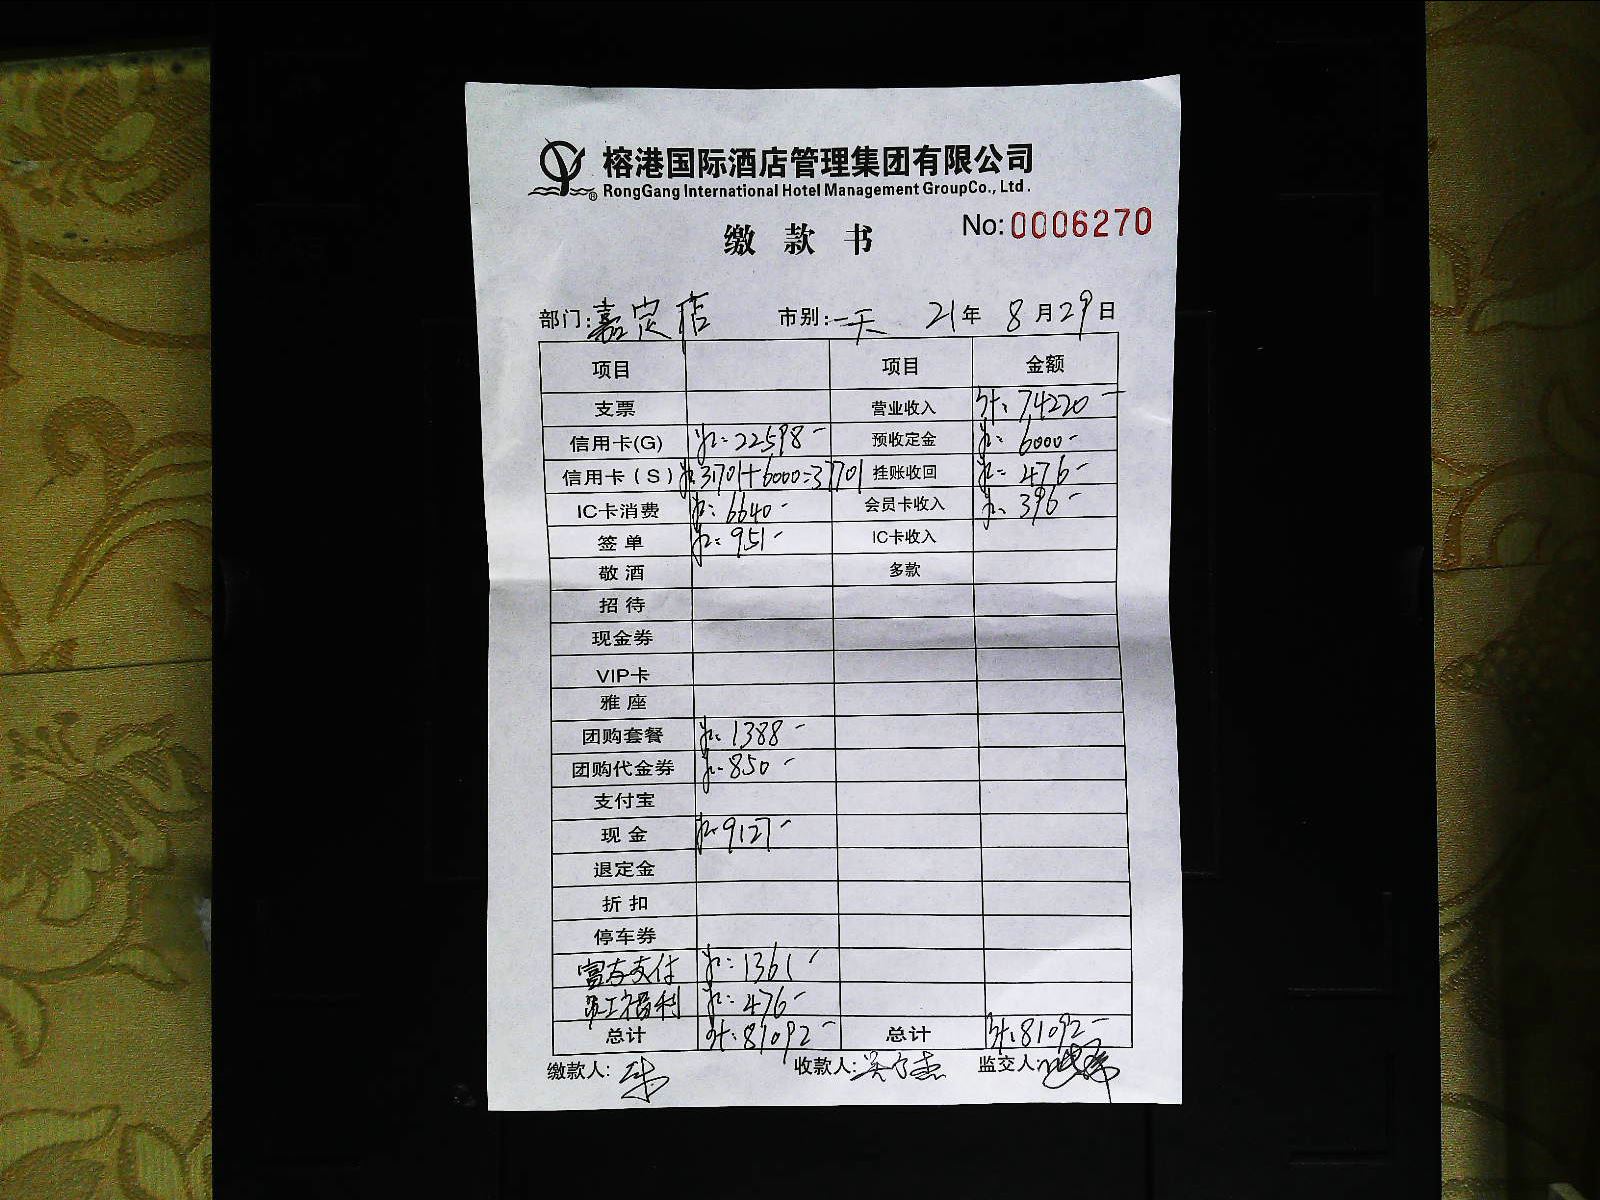 榕港国际酒店管理集团有限公司
® RongGang International Hotel Management GroupCo., Ltd.
缴 款 书 No: 0006270
部门: 嘉定店 市别: 一天 21年 8月29日
项目 项目 金额
支票 营业收入 74220-
信用卡(G) 22598- 预收定金 6000-
信用卡(S) 31701+6000=37701 挂账收回 476-
IC卡消费 6640- 会员卡收入 396-
签 单 951- IC卡收入
敬 酒 多款
招 待
现金券
VIP卡
雅 座
团购套餐 1388-
团购代金券 850-
支付宝
现 金 9127-
退定金
折 扣
停车券
富友支付 1361-
员工福利 476-
总计 81092- 总计 81092-
缴款人: 收款人: 监交人: